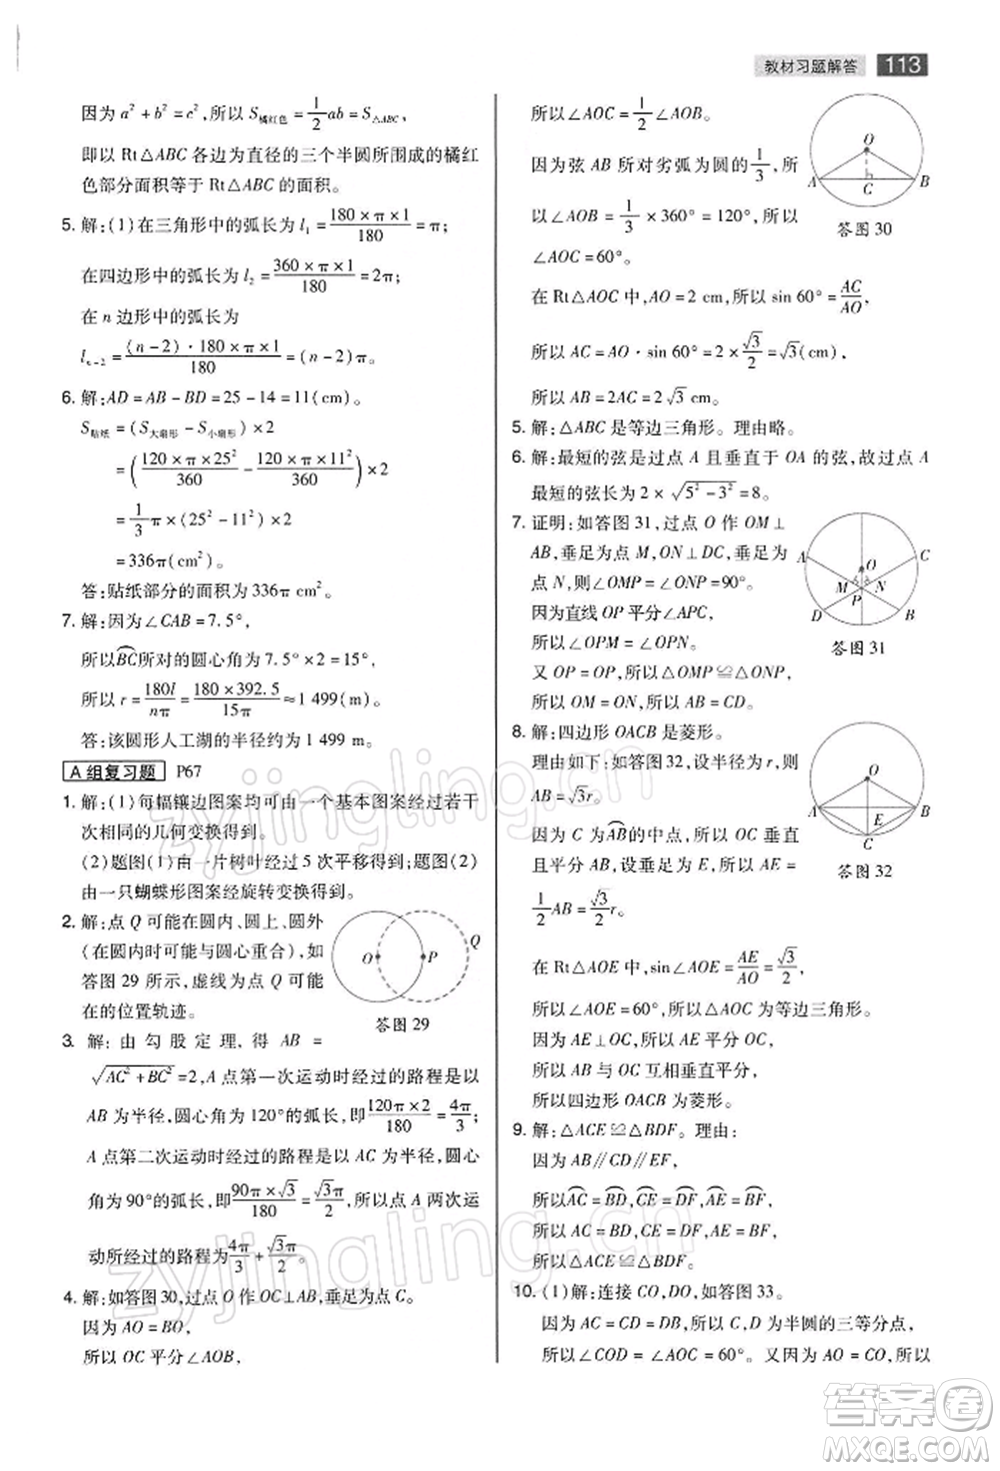 教材习题解答 113
因为 a² + b² = c²,所以 S橘红色 = 1/2 ab = S△ABC,
即以 Rt△ABC 各边为直径的三个半圆所围成的橘红
色部分面积等于 Rt△ABC 的面积。
5. 解:(1)在三角形中的弧长为 l₁ = (180 × π × 1)/180 = π;
在四边形中的弧长为 l₂ = (360 × π × 1)/180 = 2π;
在 n 边形中的弧长为
lₙ₋₂ = ((n-2)·180 × π × 1)/180 = (n-2)π。
6. 解:AD = AB - BD = 25 - 14 = 11(cm)。
S贴纸 = (S大扇形 - S小扇形) × 2
= ((120 × π × 25²)/360 - (120 × π × 11²)/360) × 2
= 1/3 π × (25² - 11²) × 2
= 336π(cm²)。
答:贴纸部分的面积为 336π cm²。
7. 解:因为∠CAB = 7.5°,
所以BC⌒所对的圆心角为 7.5° × 2 = 15°,
所以 r = 180l/nπ = (180 × 392.5)/15π ≈ 1 499(m)。
答:该圆形人工湖的半径约为 1 499 m。
A 组复习题 P67
1. 解:(1)每幅镶边图案均可由一个基本图案经过若干
次相同的几何变换得到。
(2)题图(1)由一片树叶经过 5 次平移得到;题图(2)
由一只蝴蝶形图案经旋转变换得到。
2. 解:点 Q 可能在圆内、圆上、圆外
(在圆内时可能与圆心重合),如
答图 29 所示,虚线为点 Q 可能
在的位置轨迹。
O P Q
答图 29
3. 解:由勾股定理,得 AB =
√(AC² + BC²) = 2,A 点第一次运动时经过的路程是以
AB 为半径,圆心角为 120°的弧长,即 (120π × 2)/180 = 4π/3;
A 点第二次运动时经过的路程是以 AC 为半径,圆心角为
90°的弧长,即 (90π × √3)/180 = √3π/2,所以 A 点经过两次运
动所经过的路程为 4π/3 + √3π/2。
4. 解:如答图 30,过点 O 作 OC⊥AB,垂足为点 C。
因为 AO = BO,
所以 OC 平分∠AOB,
所以∠AOC = 1/2∠AOB。
因为弦 AB 所对劣弧为圆的 1/3,所
以∠AOB = 1/3 × 360° = 120°,所以
∠AOC = 60°。
O A C B
答图 30
在 Rt△AOC 中,AO = 2 cm,所以 sin 60° = AC/AO,
所以 AC = AO · sin 60° = 2 × √3/2 = √3(cm),
所以 AB = 2AC = 2√3 cm。
5. 解:△ABC 是等边三角形。理由略。
6. 解:最短的弦是过点 A 且垂直于 OA 的弦,故过点 A
最短的弦长为 2 × √(5² - 3²) = 8。
7. 证明:如答图 31,过点 O 作 OM⊥
AB,垂足为点 M,ON⊥DC,垂足为
点 N,则∠OMP = ∠ONP = 90°。
因为直线 OP 平分∠APC,
所以∠OPM = ∠OPN。
又 OP = OP,所以△OMP≌△ONP,
所以 OM = ON,所以 AB = CD。
A O C M N P D B
答图 31
8. 解:四边形 OACB 是菱形。
理由如下:如答图 32,设半径为 r,则
AB = √3r。
因为 C 为AB⌒的中点,所以 OC 垂直
且平分 AB,设垂足为 E,所以 AE =
1/2 AB = √3/2 r。
O A B E C
答图 32
在 Rt△AOE 中,sin∠AOE = AE/AO = √3/2,
所以∠AOE = 60°,所以△AOC 为等边三角形。
因为 AE⊥OC,所以 AE 平分 OC,
所以 AB 与 OC 互相垂直平分,
所以四边形 OACB 为菱形。
9. 解:△ACE≌△BDF。理由:
因为 AB∥CD∥EF,
所以AC⌒ = BD⌒,CE⌒ = DF⌒,AE⌒ = BF⌒,
所以 AC = BD,CE = DF,AE = BF,
所以△ACE≌△BDF。
10. (1)解:连接 CO,DO,如答图 33。
因为 AC = CD = DB,所以 C,D 为半圆的三等分点,
所以∠COD = ∠AOC = 60°。又因为 AO = CO,所以
zyjingling.cn
zyjingling.cn
答案圈
MXQE.COM